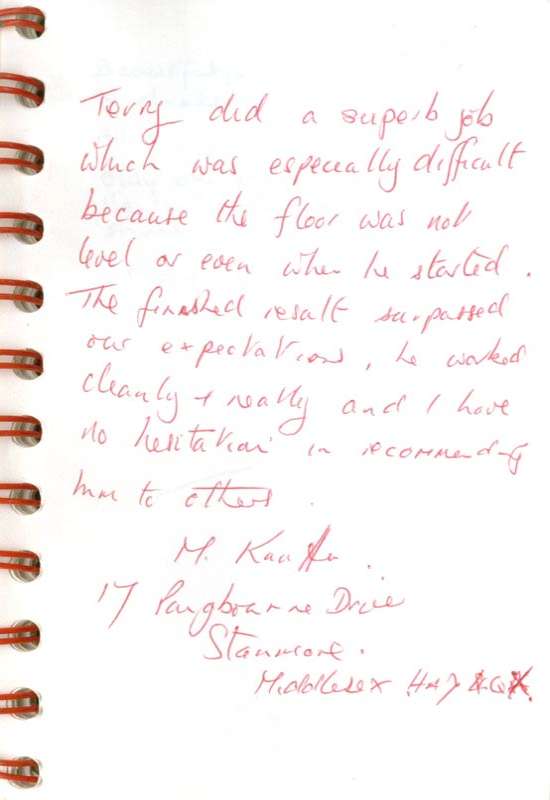 Terry did a superb job
which was especially difficult
because the floor was not
level or even when he started.
The finished result surpassed
our expectations, he worked
cleanly + neatly and I have
no hesitation in recommending
him to others.
M.
17 Pangbourne Drive
Stanmore.
Middlesex HA7